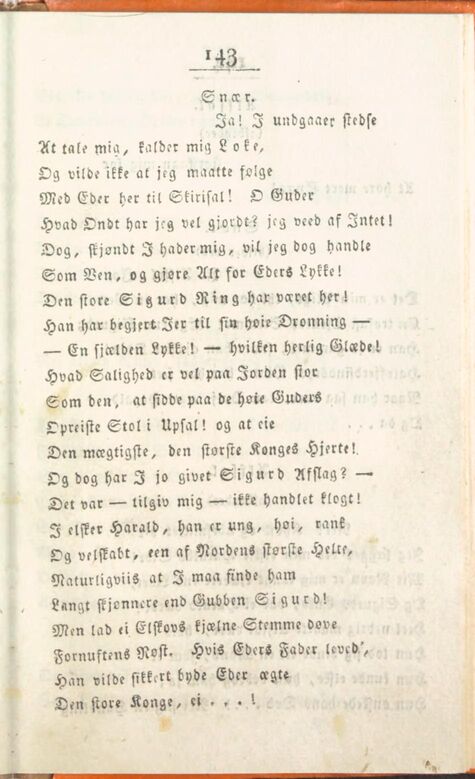 143
Snær.
Ja! I undgaaer stedse
At tale mig, kalder mig Loke,
Og vilde ikke at jeg maatte følge
Med Eder her til Skirisal! O Guder
Hvad Ondt har jeg vel gjordt? jeg veed af Intet!
Dog, skjøndt I hader mig, vil jeg dog handle
Som Ven, og gjøre Alt for Eders Lykke!
Den store Sigurd Ring har været her!
Han har begjert Jer til sin høie Dronning —
— En sjælden Lykke! — hvilken herlig Glæde!
Hvad Salighed er vel paa Jorden stor
Som den, at sidde paa de høie Guders
Opreiste Stol i Upsal! og at eie
Den mægtigste, den største Konges Hjerte!
Og dog har I jo givet Sigurd Afslag? —
Det var — tilgiv mig — ikke handlet klogt!
I elsker Harald, han er ung, høi, rank
Og velskabt, een af Nordens største Helte,
Naturligviis at I maa finde ham
Langt skjønnere end Gubben Sigurd!
Men lad ei Elskovs kjælne Stemme døve
Fornuftens Røst. Hvis Eders Fader leved',
Han vilde sikkert byde Eder ægte
Den store Konge, ei . . . !